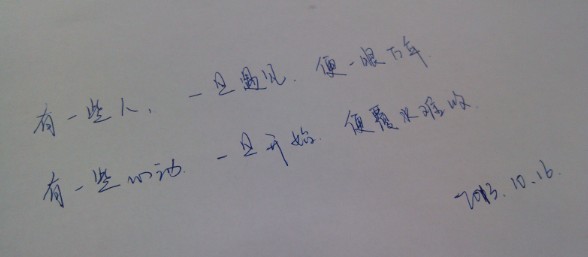 有一些人、一旦遇见、便一眼万年.
有一些心动、一旦开始、便覆水难收.
2013.10.16.